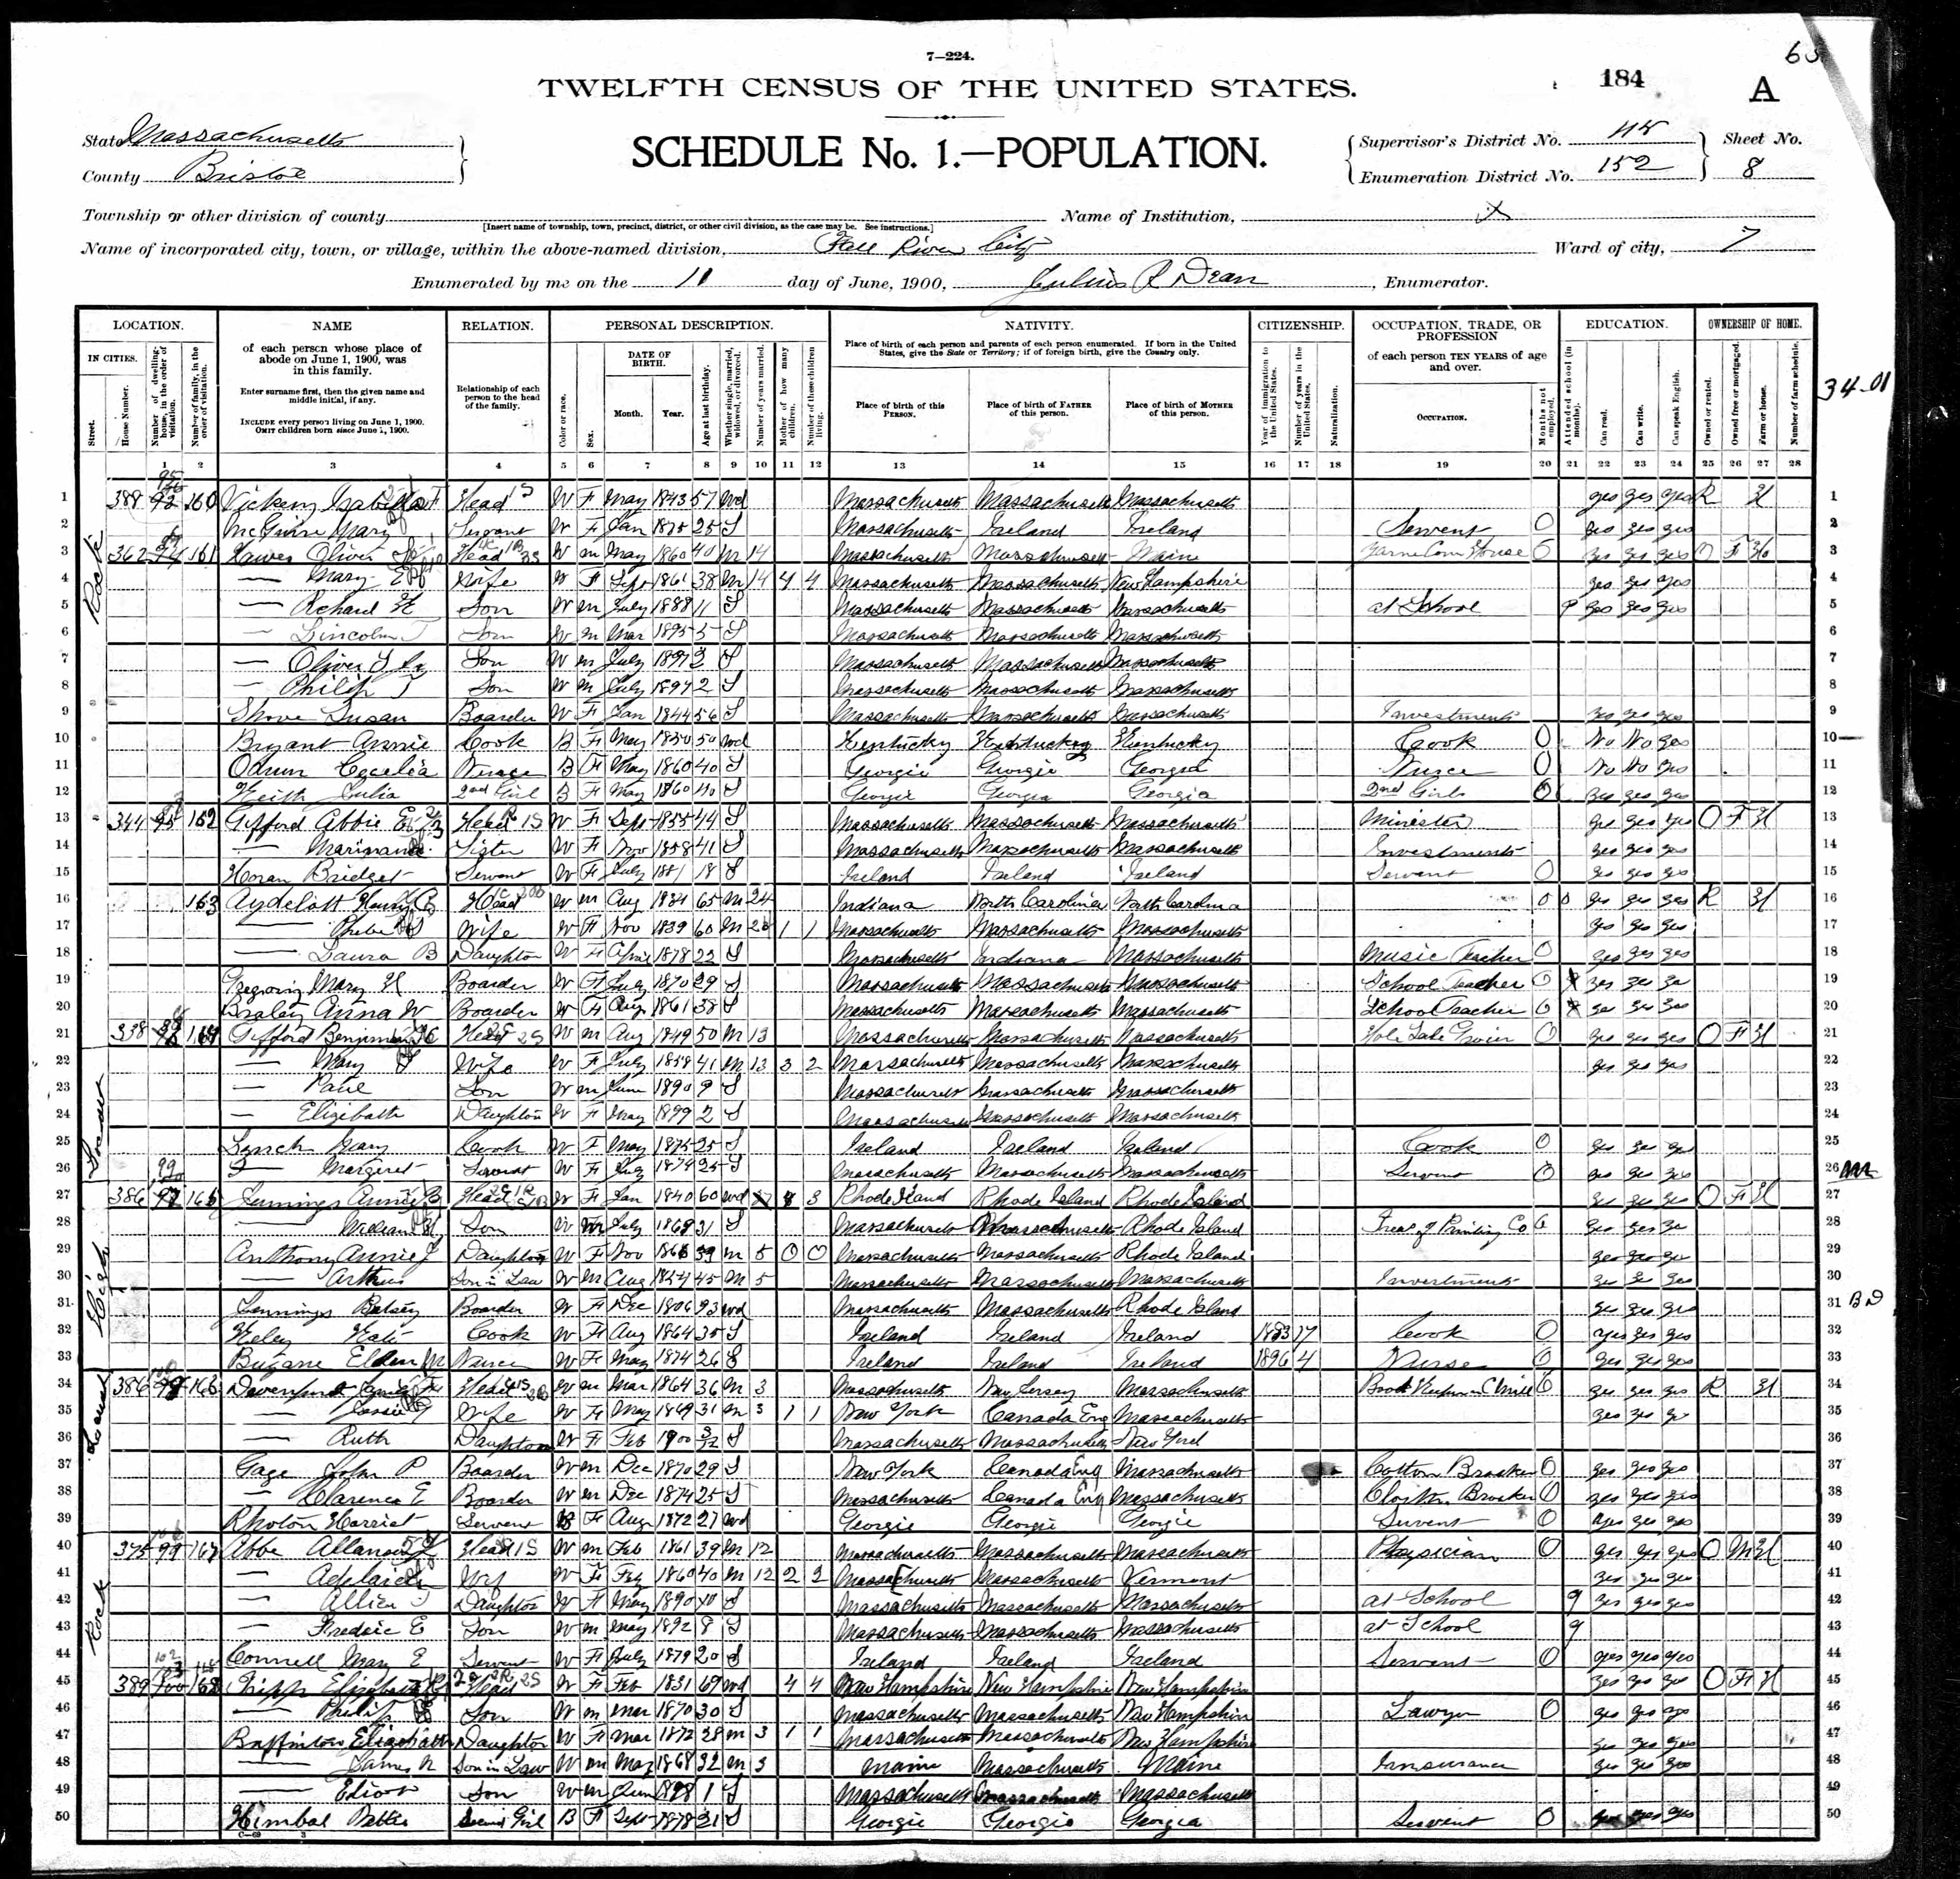 7—224.
184
A
TWELFTH CENSUS OF THE UNITED STATES.
State Massachusetts
County Bristol
SCHEDULE No. 1.—POPULATION.
Supervisor's District No.
Enumeration District No. 152
Sheet No. 8
Township or other division of county
[Insert name of township, town, precinct, district, or other civil division, as the case may be. See instructions.]
Name of Institution, X
Name of incorporated city, town, or village, within the above-named division, Fall River City
Ward of city, 7
Enumerated by me on the 11 day of June, 1900, Julius R Dean, Enumerator.
34-01
LOCATION. NAME RELATION. PERSONAL DESCRIPTION. NATIVITY. CITIZENSHIP. OCCUPATION, TRADE, OR PROFESSION EDUCATION. OWNERSHIP OF HOME.
IN CITIES.
Street.
House Number.
Number of dwelling-house, in the order of visitation.
Number of family, in the order of visitation.
of each person whose place of abode on June 1, 1900, was in this family.
Enter surname first, then the given name and middle initial, if any.
INCLUDE every person living on June 1, 1900.
OMIT children born since June 1, 1900.
Relationship of each person to the head of the family.
Color or race.
Sex.
DATE OF BIRTH.
Month.
Year.
Age at last birthday.
Whether single, married, widowed, or divorced.
Number of years married.
Mother of how many children.
Number of these children living.
Place of birth of each person and parents of each person enumerated. If born in the United States, give the State or Territory; if of foreign birth, give the Country only.
Place of birth of this PERSON.
Place of birth of FATHER of this person.
Place of birth of MOTHER of this person.
Year of immigration to the United States.
Number of years in the United States.
Naturalization.
of each person TEN YEARS of age and over.
OCCUPATION.
Months not employed.
Attended school (in months).
Can read.
Can write.
Can speak English.
Owned or rented.
Owned free or mortgaged.
Farm or house.
Number of farm schedule.
1 2 3 4 5 6 7 8 9 10 11 12 13 14 15 16 17 18 19 20 21 22 23 24 25 26 27 28
1 388 160 Vickery Isabella F Head W F May 1843 57 wd Massachusetts Massachusetts Massachusetts yes yes yes R H 1
2 McGuire Mary Servant W F Jan 1875 25 S Massachusetts Ireland Ireland Servent 0 yes yes yes 2
3 362 161 Hawes Oliver Head W m May 1860 40 m 14 Massachusetts Massachusetts Maine 0 yes yes yes O F Ho 3
4 — Mary E Wife W F Sept 1861 38 m 14 4 4 Massachusetts Massachusetts New Hampshire yes yes yes 4
5 — Richard H Son W m July 1888 11 S Massachusetts Massachusetts Massachusetts at School 9 yes yes yes 5
6 — Lincoln T Son W m Mar 1895 5 S Massachusetts Massachusetts Massachusetts 6
7 — Oliver Son W m July 1897 2 S Massachusetts Massachusetts Massachusetts 7
8 — Philip T Son W m July 1897 2 S Massachusetts Massachusetts Massachusetts 8
9 Shove Susan Boarder W F Jan 1844 56 S Massachusetts Massachusetts Massachusetts Investments yes yes yes 9
10 Bryant Annie Cook B F May 1850 50 wd Kentucky Kentucky Kentucky Cook 0 No No yes 10
11 Odum Cecelia Nurse B F May 1860 40 S Georgia Georgia Georgia Nurse 0 No No yes 11
12 Keith Julia 2nd Girl B F May 1860 40 S Georgia Georgia Georgia 2nd Girls 0 yes yes yes 12
13 344 162 Gifford Abbie E Head W F Sept 1855 44 S Massachusetts Massachusetts Massachusetts Minister yes yes yes O F H 13
14 — Sister W F Nov 1858 41 S Massachusetts Massachusetts Massachusetts Investments yes yes yes 14
15 Horan Bridget Servent W F July 1881 18 S Ireland Ireland Ireland Servant 0 yes yes yes 15
16 163 Aydelott Henry B Head W m Aug 1834 65 m 24 Indiana North Carolina North Carolina 0 0 yes yes yes R H 16
17 — Phebe Wife W F Nov 1839 60 m 1 1 Massachusetts Massachusetts Massachusetts yes yes yes 17
18 — Laura B Daughter W F April 1878 22 S Massachusetts Indiana Massachusetts Music Teacher 0 yes yes yes 18
19 Mary H Boarder W F July 1870 29 S Massachusetts Massachusetts Massachusetts School Teacher 0 yes yes 19
20 Braley Anna W Boarder W F Aug 1861 38 S Massachusetts Massachusetts Massachusetts School Teacher 0 yes yes yes 20
21 338 164 Gifford Benjamin Head W m Aug 1849 50 m 13 Massachusetts Massachusetts Massachusetts 0 yes yes yes O F H 21
22 — Mary Wife W F July 1858 41 m 13 3 2 Massachusetts Massachusetts Massachusetts yes yes yes 22
23 — Son W m June 1890 9 S Massachusetts Massachusetts Massachusetts 23
24 — Elizibath Daughter W F May 1899 2 S Massachusetts Massachusetts Massachusetts 24
25 Lynch Mary Cook W F May 1875 25 S Ireland Ireland Ireland Cook 0 yes yes yes 25
26 — Margeret Servent W F July 1874 25 S Massachusetts Massachusetts Massachusetts Servent 0 yes yes yes 26
27 386 165 Jennings Annie Head W F Jan 1840 60 wd 3 Rhode Island Rhode Island Rhode Island yes yes yes O F H 27
28 — William H Son W m July 1868 31 S Massachusetts Massachusetts Rhode Island Treas of Printing Co yes yes ye 28
29 Anthony Annie J Daughter W F Nov m 5 0 0 Massachusetts Massachusetts Rhode Island yes yes yes 29
30 — Arthur Son in Law W m Aug 1854 45 m 5 Massachusetts Massachusetts Massachusetts Investments yes yes yes 30
31 Jennings Betsey Boarder W F Dec 1806 93 wd Massachusetts Massachusetts Rhode Island yes yes yes 31
32 Kate Cook W F Aug 1864 35 S Ireland Ireland Ireland 1883 17 Cook 0 yes yes yes 32
33 Ellen M Nurse W F May 1874 26 S Ireland Ireland Ireland 1896 4 Nurse 0 yes yes yes 33
34 386 166 Davenport Head W m Mar 1864 36 m 3 Massachusetts New Jersey Massachusetts yes yes yes R H 34
35 — Jessie Wife W F May 1869 31 m 3 1 1 New York Canada Eng Massachusetts yes yes ye 35
36 — Ruth Daughter W F Feb 1900 3/12 S Massachusetts Massachusetts New York 36
37 Gage John P Boarder W m Dec 1870 29 S New York Canada Eng Massachusetts Cotton Broaker 0 yes yes yes 37
38 — Clarence E Boarder W m Dec 1874 25 S Massachusetts Canada Eng Massachusetts Broaker 0 yes yes yes 38
39 Rhoton Harriet Servent B F Aug 1872 27 wd Georgia Georgia Georgia Servent 0 yes yes yes 39
40 375 167 Abbe Allanson Head W m Feb 1861 39 m 12 Massachusetts Massachusetts Massachusetts Physician 0 yes yes yes O M H 40
41 — Adelaide Wif W F Feb 1860 40 m 12 2 2 Massachusetts Massachusetts Vermont yes yes yes 41
42 — Daughter W F May 1890 10 S Massachusetts Massachusetts Massachusetts at School 9 yes yes yes 42
43 — Fredric E Son W m May 1892 8 S Massachusetts Massachusetts Massachusetts at School 9 43
44 Connell Mary E Servent W F July 1879 20 S Ireland Ireland Ireland Servent 0 yes yes yes 44
45 389 168 Tripp Elizabeth Head W F Feb 1831 69 wd 4 4 New Hampshire New Hampshire New Hampshire yes yes yes O F H 45
46 — Philip Son W m Mar 1870 30 S Massachusetts Massachusetts New Hampshire Lawyer 0 yes yes yes 46
47 Buffinton Elizabeth Daughter W F Mar 1872 28 m 3 1 1 Massachusetts Massachusetts New Hampshire yes yes yes 47
48 — James N Son in Law W m May 1868 32 m 3 Maine Massachusetts Maine Insurance yes yes yes 48
49 — Son W m 1898 1 S Massachusetts Massachusetts Massachusetts 49
50 Kimbal Bettie Second Girl B F Sept 1878 21 S Georgia Georgia Georgia Servent 0 yes yes yes 50